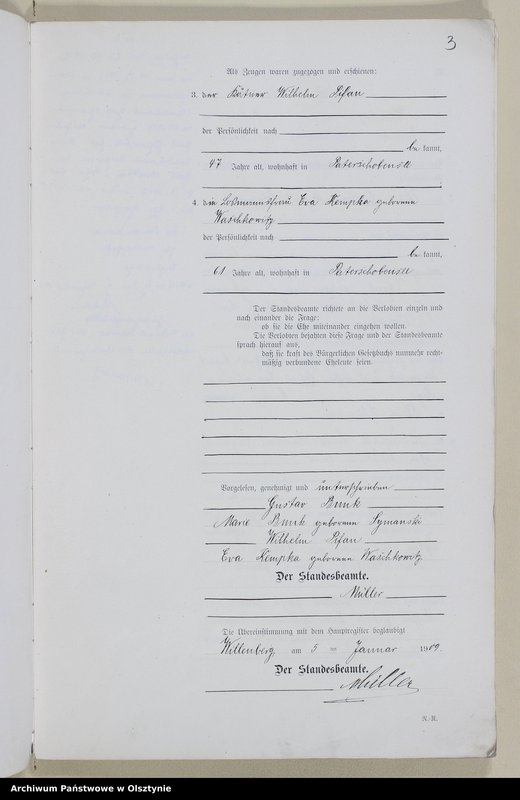 3
Als Zeugen waren zugezogen und erschienen:
3. der Kätner Wilhelm Pifan
der Persönlichkeit nach
be kannt,
47 Jahre alt, wohnhaft in Paterschobensee
4. die Losmannsfrau Eva Kempka geborene
Waschkowitz
der Persönlichkeit nach
be kannt,
61 Jahre alt, wohnhaft in Paterschobensee
Der Standesbeamte richtete an die Verlobten einzeln und
nach einander die Frage:
ob sie die Ehe miteinander eingehen wollen.
Die Verlobten bejahten diese Frage und der Standesbeamte
sprach hierauf aus,
daß sie kraft des Bürgerlichen Gesetzbuchs nunmehr recht-
mäßig verbundene Eheleute seien.
Vorgelesen, genehmigt und unterschrieben
Gustav Bunk
Marie Bunk geborene Symanski
Wilhelm Pifan
Eva Kempka geborene Waschkowitz
Der Standesbeamte.
Müller
Die Übereinstimmung mit dem Hauptregister beglaubigt
Willenberg, am 5 ten Januar 1909.
Der Standesbeamte.
Müller
Archiwum Państwowe w Olsztynie